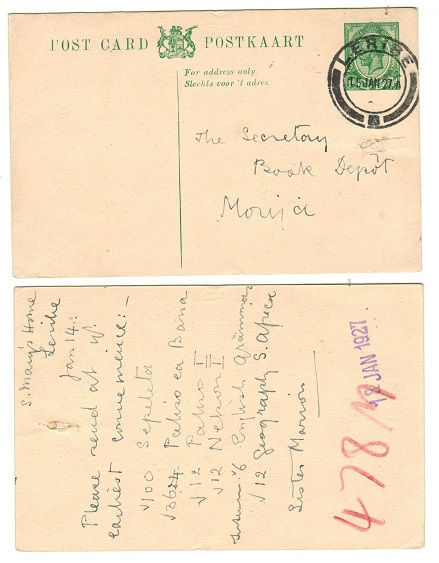 POST CARD POSTKAART
For address only.
Slechts voor 't adres.
LERIBE
JAN 27
The Secretary
Book Depôt
Morija
S. Mary's Home
Leribe
Jan 14.
Please send at yr
earliest convenience:-
√100 Sepeleta
Paliso ea Bana
√12 Paliso I
√12 II
6 English Grammar
√12 Geography S. Africa
Sister Marion
18 JAN 1927
478